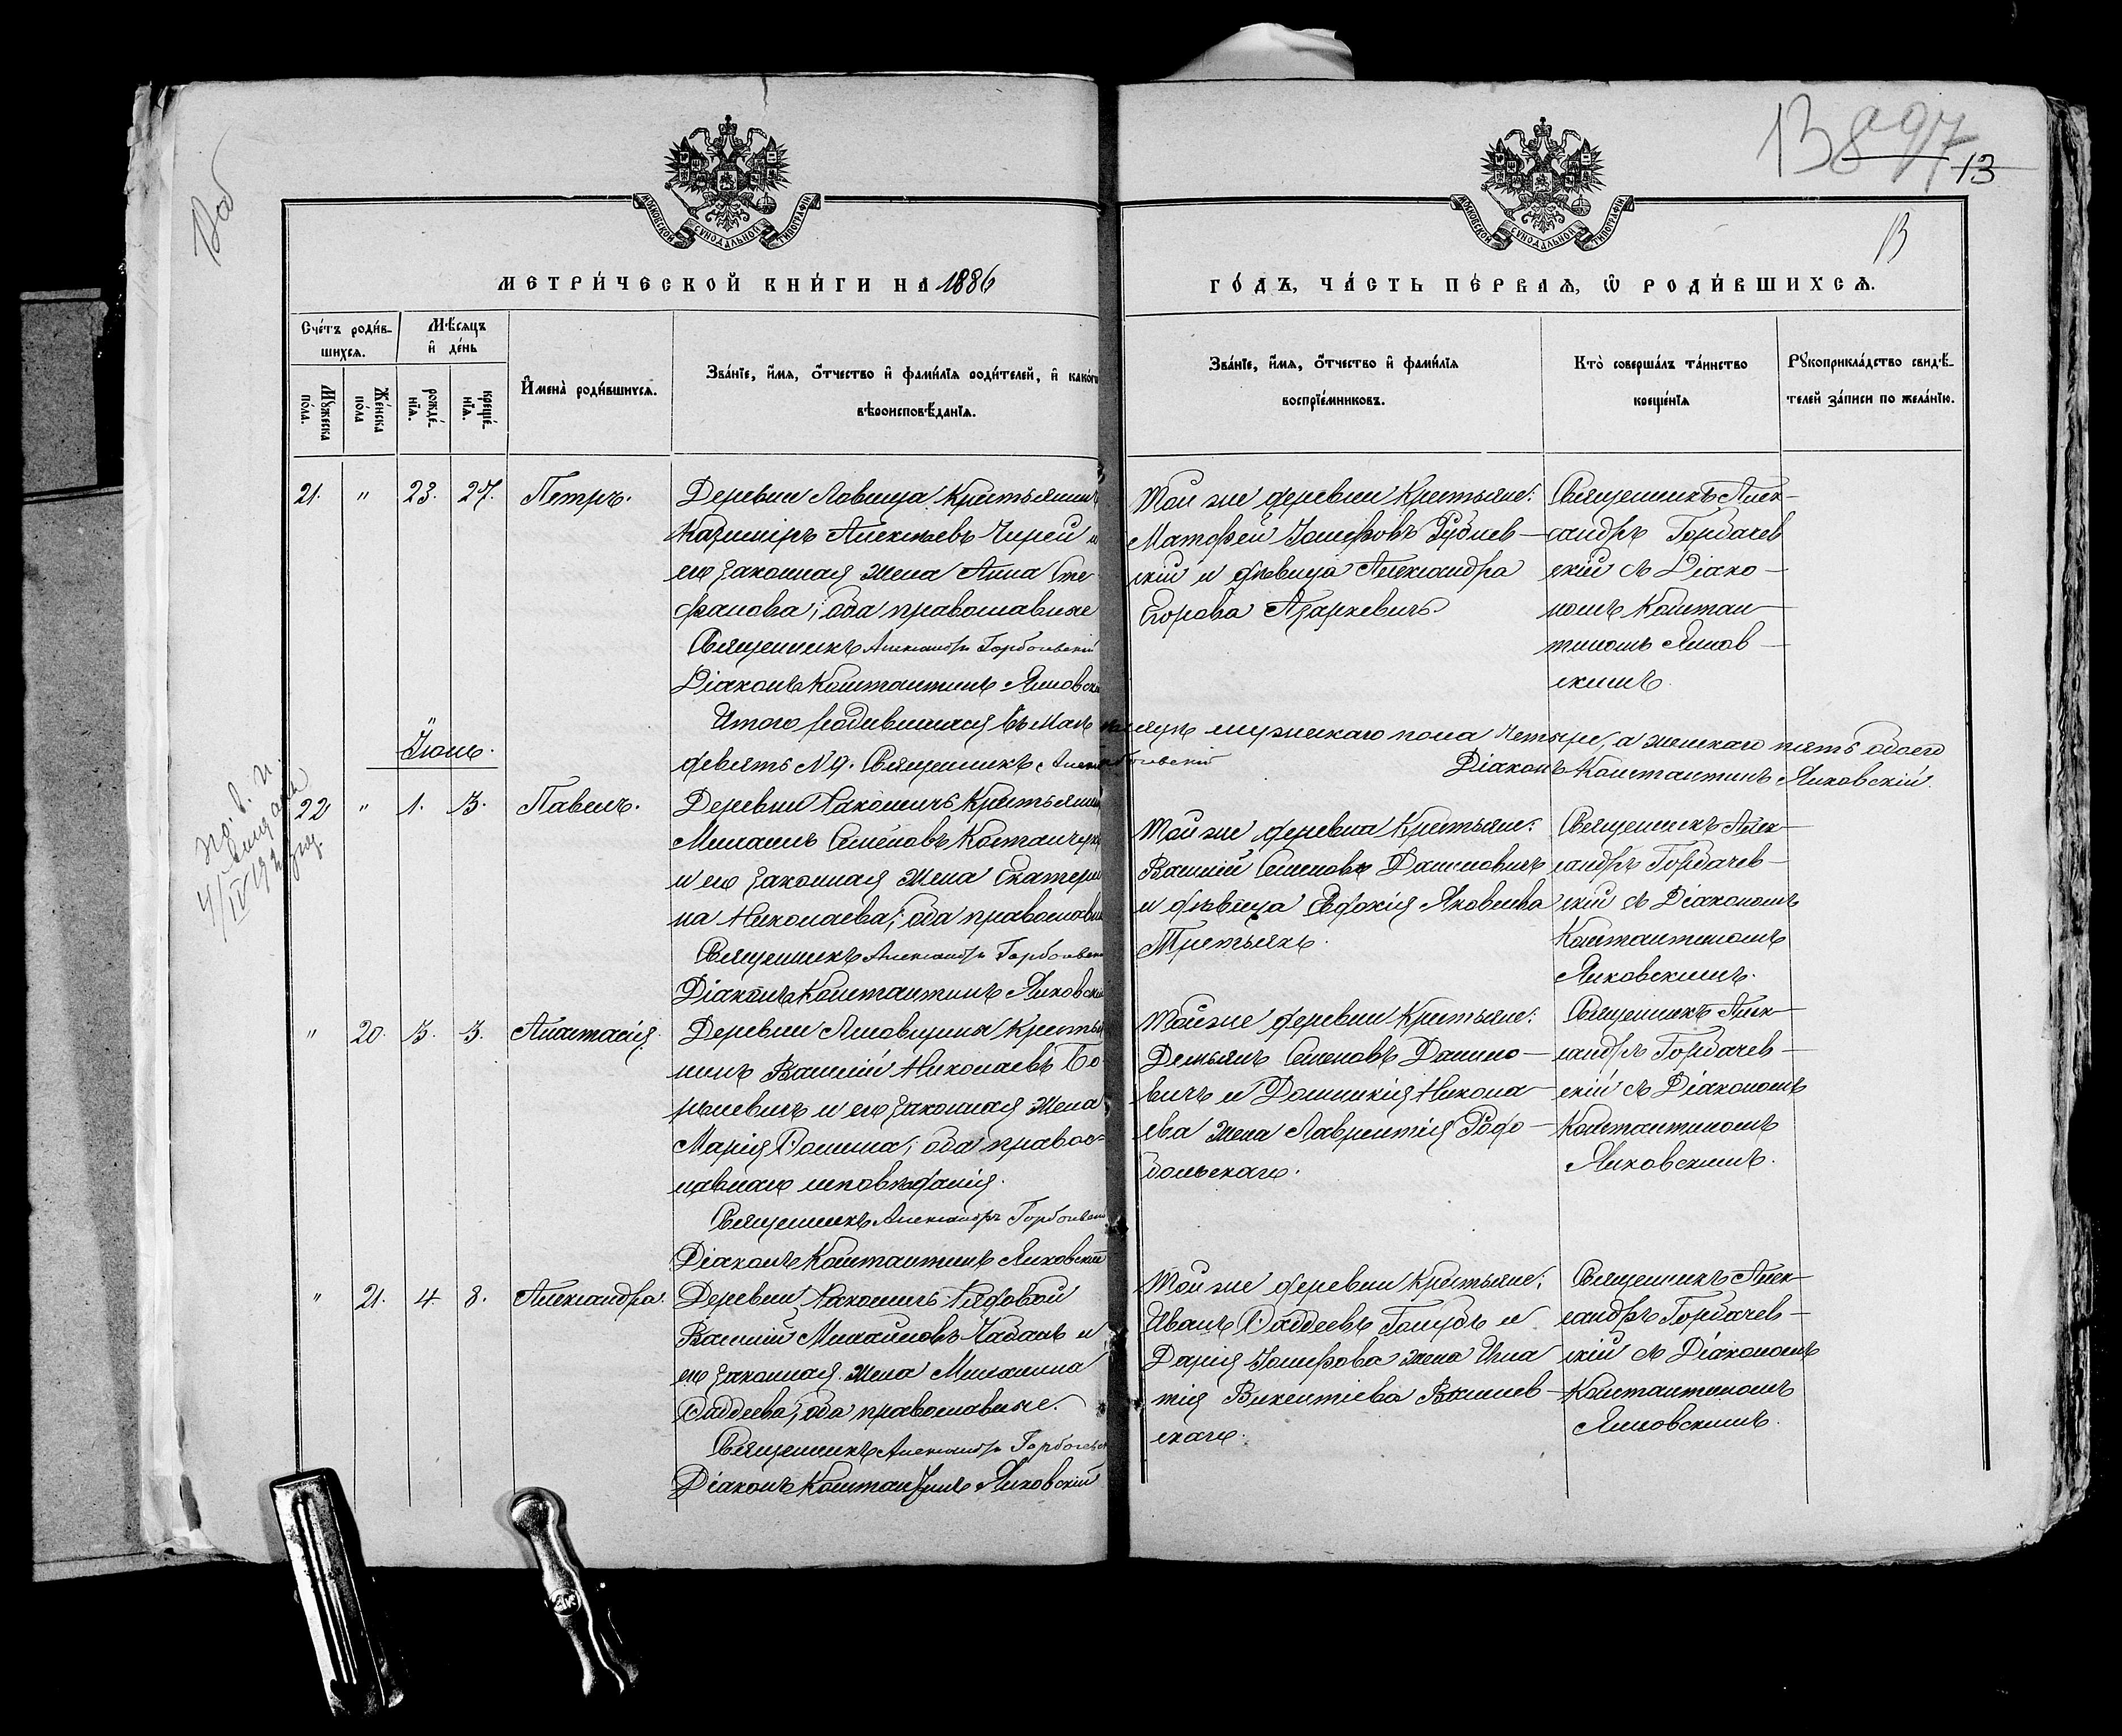 13
897
13
13
МОСКОВСКОЙ СѴНОДАЛЬНОЙ ТИПОГРАФІИ
МОСКОВСКОЙ СѴНОДАЛЬНОЙ ТИПОГРАФІИ
МЕТРИ́ЧЕСКОЙ КНИ́ГИ НА 1886
ГО́ДЪ, ЧА́СТЬ ПЕ́РВАѦ, Ѡ҆ РОДИ́ВШИХСѦ.
Сче́тъ роди́в-
шихсѧ.
Мѣ́сѧцъ
и҆ де́нь
Мꙋжеска
по́ла.
Же́нска
по́ла
рожде́-
нїѧ.
креще́-
нїѧ.
И҆мена̀ роди́вшихсѧ.
Зва́нїе, и҆́мѧ, ѻ҆́тчество и҆ фами́лїѧ роди́телей, и҆ како́гѡ
вѣроисповѣ́данїѧ.
Зва́нїе, и҆́мѧ, ѻ҆́тчество и҆ фами́лїѧ
воспрїе́мниковъ.
Кто̀ соверша́лъ та́инство
креще́нїѧ
Рꙋкоприкла́дство свидѣ́-
телей за́писи по жела́нїю.
21. " 23. 27. Петръ.
Деревни Лавища Крестьянинъ
Казиміръ Алексѣевъ Чирей и
его законная жена Анна Сте
фанова; оба православные
Священникъ Александръ Горбачевскій
Діаконъ Константинъ Янковскій
Той же деревни Крестьяне:
Матфей Іосифовъ Рублев-
скій и дѣвица Александра
Егорова Азаркевичъ
Священникъ Алек-
сандръ Горбачев
скій съ Діако-
номъ Констан-
тиномъ Янков-
скимъ.
Итого родившихся въ Маѣ мѣсяцѣ мужескаго пола четыре, а женскаго пять обоего
девять №9. Священникъ Александръ Горбачевскій
Діаконъ Константинъ Янковскій.
Іюнь.
22 " 1. 3. Павелъ.
Деревни Ракошичъ Крестьянинъ
Михаилъ Семеновъ
и его законная жена Екатери
на Николаева; оба православные
Священникъ Александръ Горбачевскій
Діаконъ Константинъ Янковскій
Той же деревни Крестьяне:
Василій Семеновъ Даниловичъ
и дѣвица Евдокія Яковлева
Третьякъ.
Священникъ Алек-
сандръ Горбачев-
скій съ Діакономъ
Константиномъ
Янковскимъ.
" 20. 3. 3. Анастасія.
Деревни Лисовщины Крестья
нинъ Василій Николаевъ
и его законная жена
Марія Ѳомина; оба правос-
лавнаго исповѣданія.
Священникъ Александръ Горбачевскій
Діаконъ Константинъ Янковскій
Той же деревни Крестьяне:
Демьянъ Семеновъ Данило-
вичъ и Домникія Никола-
ева жена Лаврентія Родо-
больскаго.
Священникъ Алек-
сандръ Горбачев-
скій съ Діакономъ
Константиномъ
Янковскимъ.
" 21. 4. 8. Александра.
Деревни Ракошичъ Рядовой
Василій Михайловъ Чабанъ и
его законная жена Михалина
Ѳаддеева; оба православные.
Священникъ Александръ Горбачевскій
Діаконъ Константинъ Янковскій
Той же деревни Крестьяне:
Иванъ Ѳаддеевъ Голубъ и
Дарія Іосифова жена Игна
тія Викентіева
скаго.
Священникъ Алек-
сандръ Горбачев-
скій съ Діакономъ
Константиномъ
Янковскимъ.